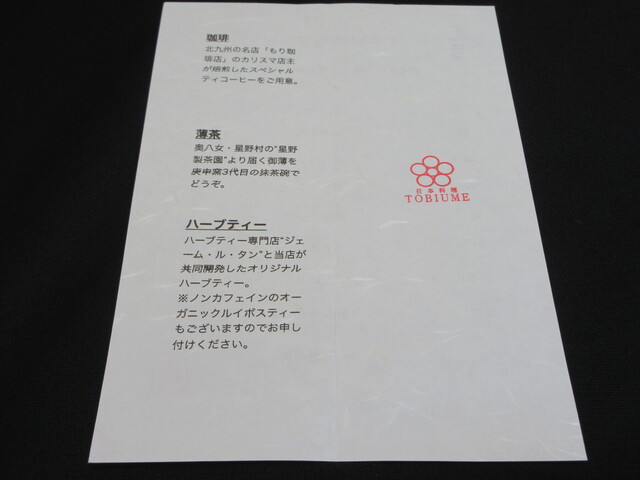 珈琲
北九州の名店「もり珈
琲店」のカリスマ店主
が焙煎したスペシャル
ティコーヒーをご用意。
薄茶
奥八女・星野村の"星野
製茶園"より届く御薄を
庚申窯3代目の抹茶碗で
どうぞ。
ハーブティー
ハーブティー専門店"ジェ
ーム・ル・タン"と当店が
共同開発したオリジナル
ハーブティー。
※ノンカフェインのオー
ガニックルイボスティー
もございますのでお申し
付けください。
日本料理
TOBIUME